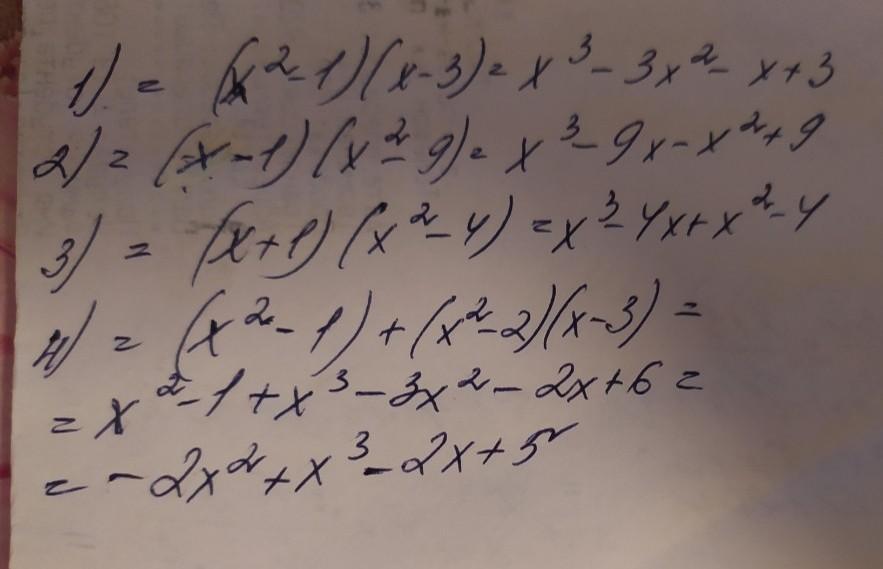 1) = (x²-1)(x-3) = x³ - 3x² - x + 3
2) = (x-1)(x²-9) = x³ - 9x - x² + 9
3) = (x+1)(x²-4) = x³ - 4x + x² - 4
4) = (x²-1) + (x²-2)(x-3) =
= x²-1 + x³ - 3x² - 2x + 6 =
= -2x² + x³ - 2x + 5